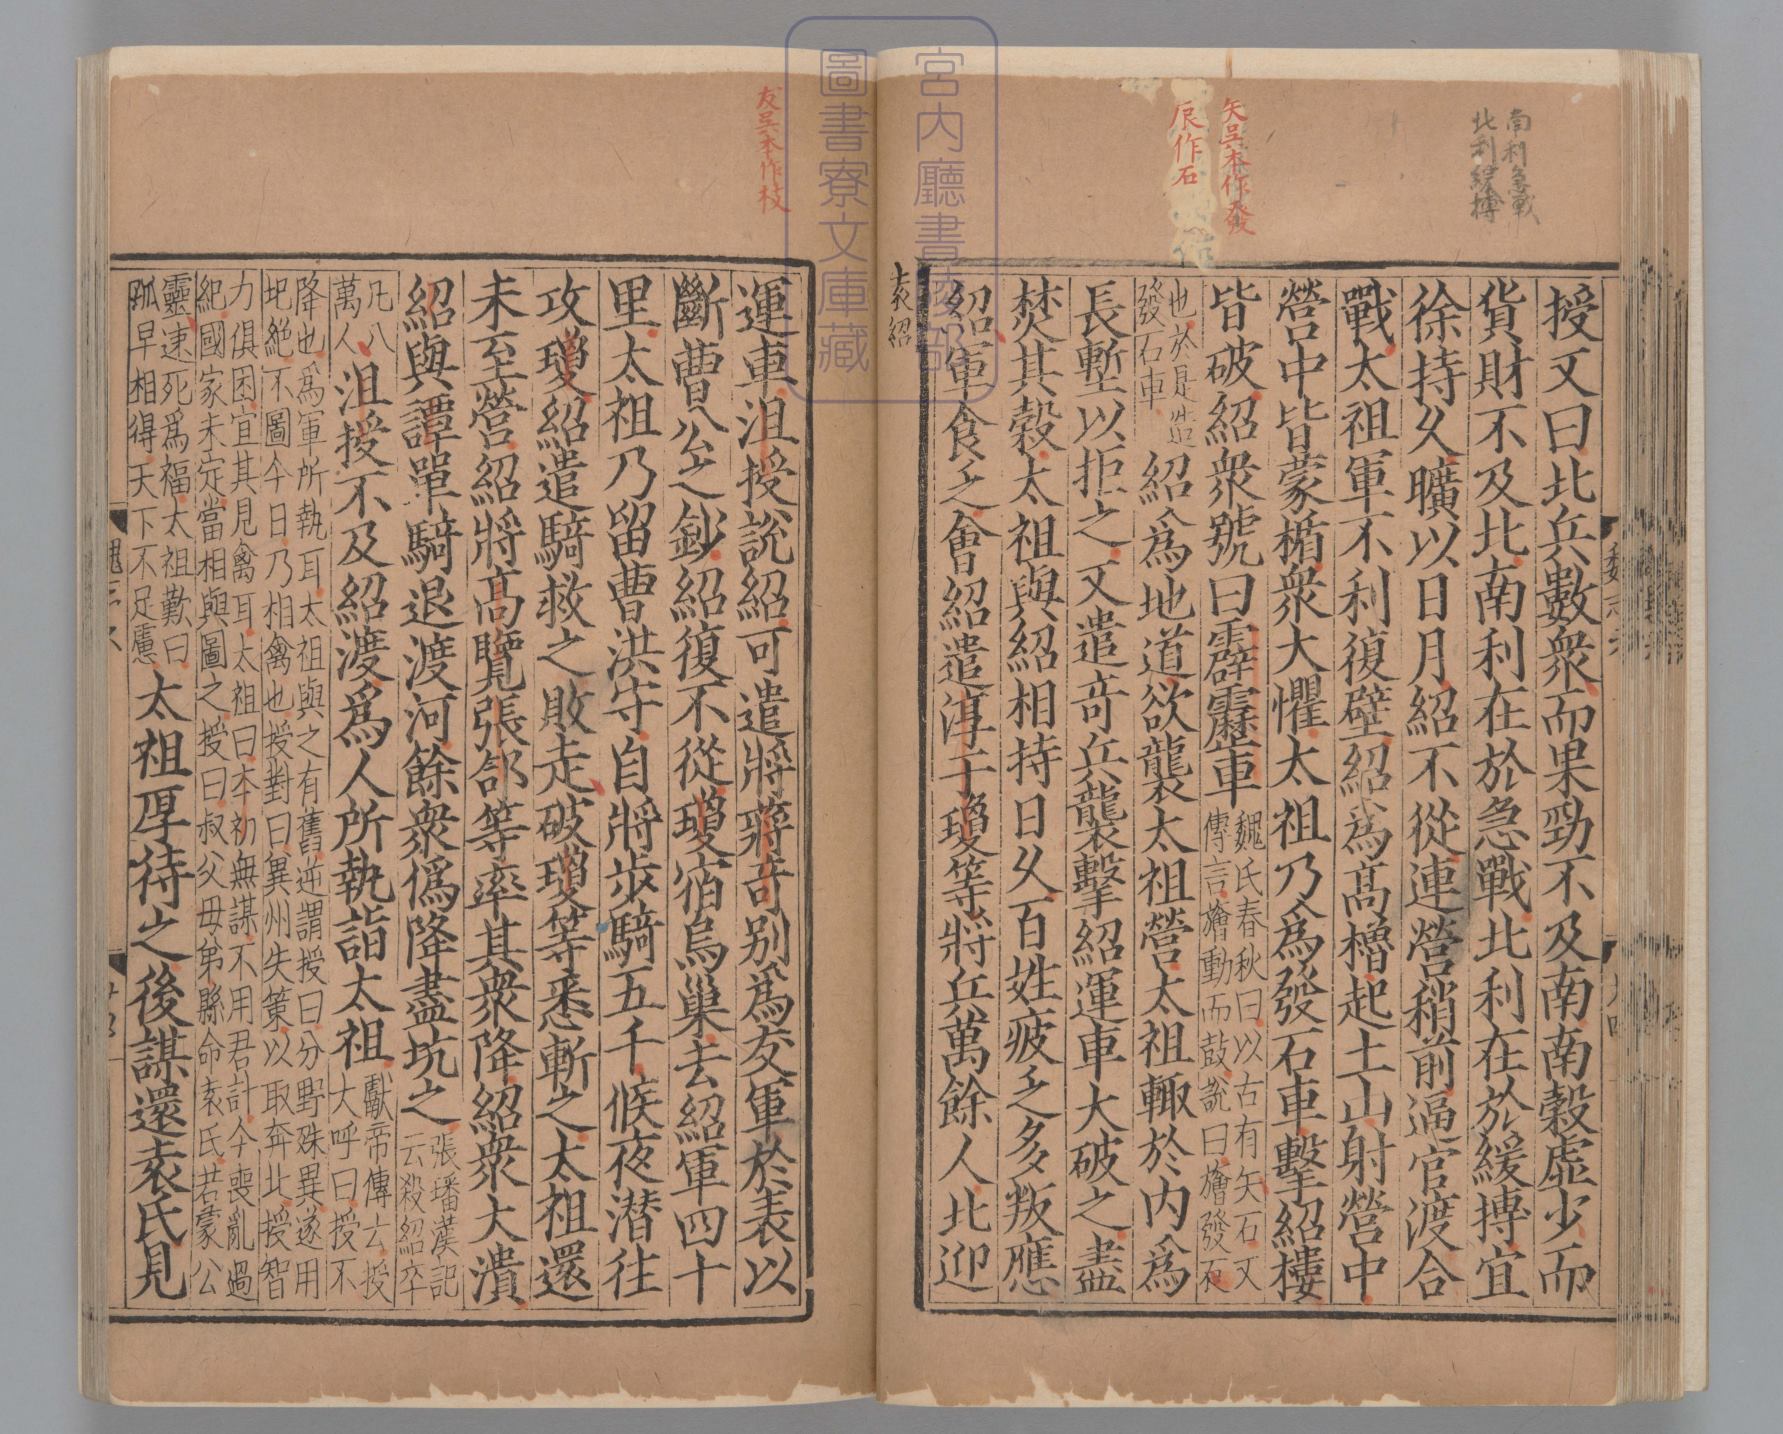 南利急戰
北利緩摶
矢吳本作發
辰作石
授又曰北兵數衆而果勁不及南南穀虛少而
貨財不及北南利在於急戰北利在於緩摶宜
徐持久曠以日月紹不從連營稍前逼官渡合
戰太祖軍不利復壁紹爲高櫓起土山射營中
營中皆蒙楯衆大懼太祖乃爲發石車擊紹樓
皆破紹衆號曰霹靂車
魏氏春秋曰以古有矢石又
傳言旝動而鼓說曰旝發石
也於是造
發石車
紹爲地道欲襲太祖營太祖輒於内爲
長塹以拒之又遣奇兵襲擊紹運車大破之盡
焚其穀太祖與紹相持日久百姓疲乏多叛應
紹軍食乏會紹遣淳于瓊等將兵萬餘人北迎
袁紹
宮内廳書陵部
圖書寮文庫藏
友吳本作枝
運車沮授說紹可遣將蔣奇別爲友軍於表以
斷曹公之鈔紹復不從瓊宿烏巢去紹軍四十
里太祖乃留曹洪守自將步騎五千候夜潜往
攻瓊紹遣騎救之敗走破瓊等悉斬之太祖還
未至營紹將高覽張郃等率其衆降紹衆大潰
紹與譚單騎退渡河餘衆僞降盡坑之
張璠漢記
云殺紹卒
凡八
萬人
沮授不及紹渡爲人所執詣太祖
獻帝傳云授
大呼曰授不
降也爲軍所執耳太祖與之有舊逆謂授曰分野殊異遂用
圯絕不圖今日乃相禽也授對曰兾州失策以取奔北授智
力俱困宜其見禽耳太祖曰本初無謀不用君計今喪亂過
紀國家未定當相與圖之授曰叔父母弟縣命袁氏若蒙公
靈速死爲福太祖歎曰
孤早相得天下不足慮
太祖厚待之後謀還袁氏見